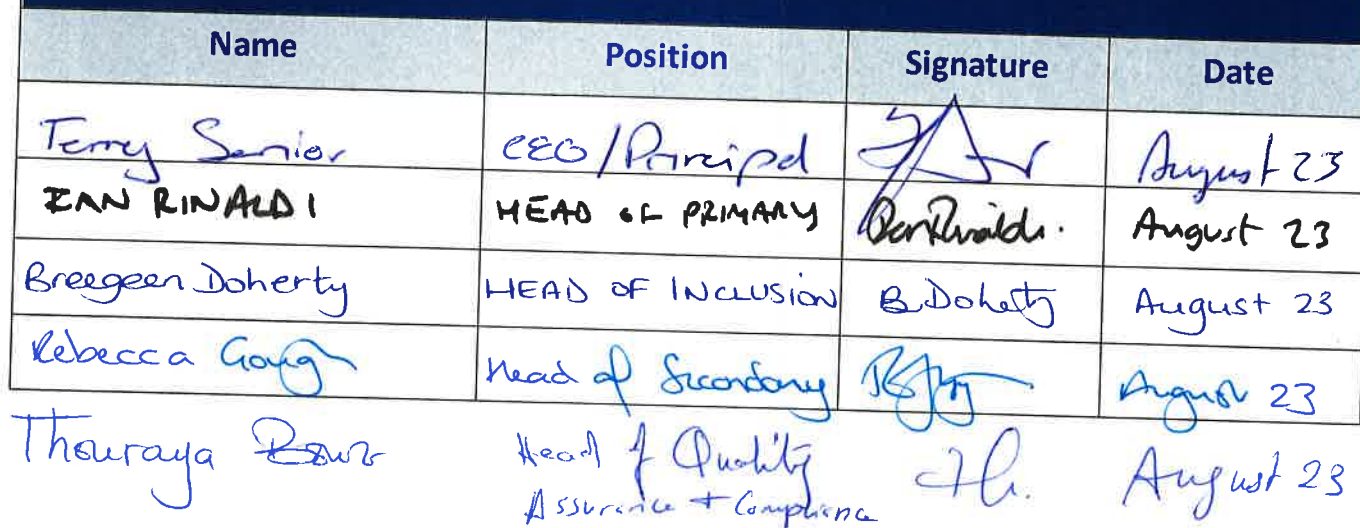 Name Position Signature Date
Terry Senior CEO/Principal August 23
IAN RINALDI HEAD OF PRIMARY August 23
Breegeen Doherty HEAD OF INCLUSION B. Doherty August 23
Rebecca Gough Head of Secondary August 23
Thouraya Head of Quality August 23
Assurance + Compliance